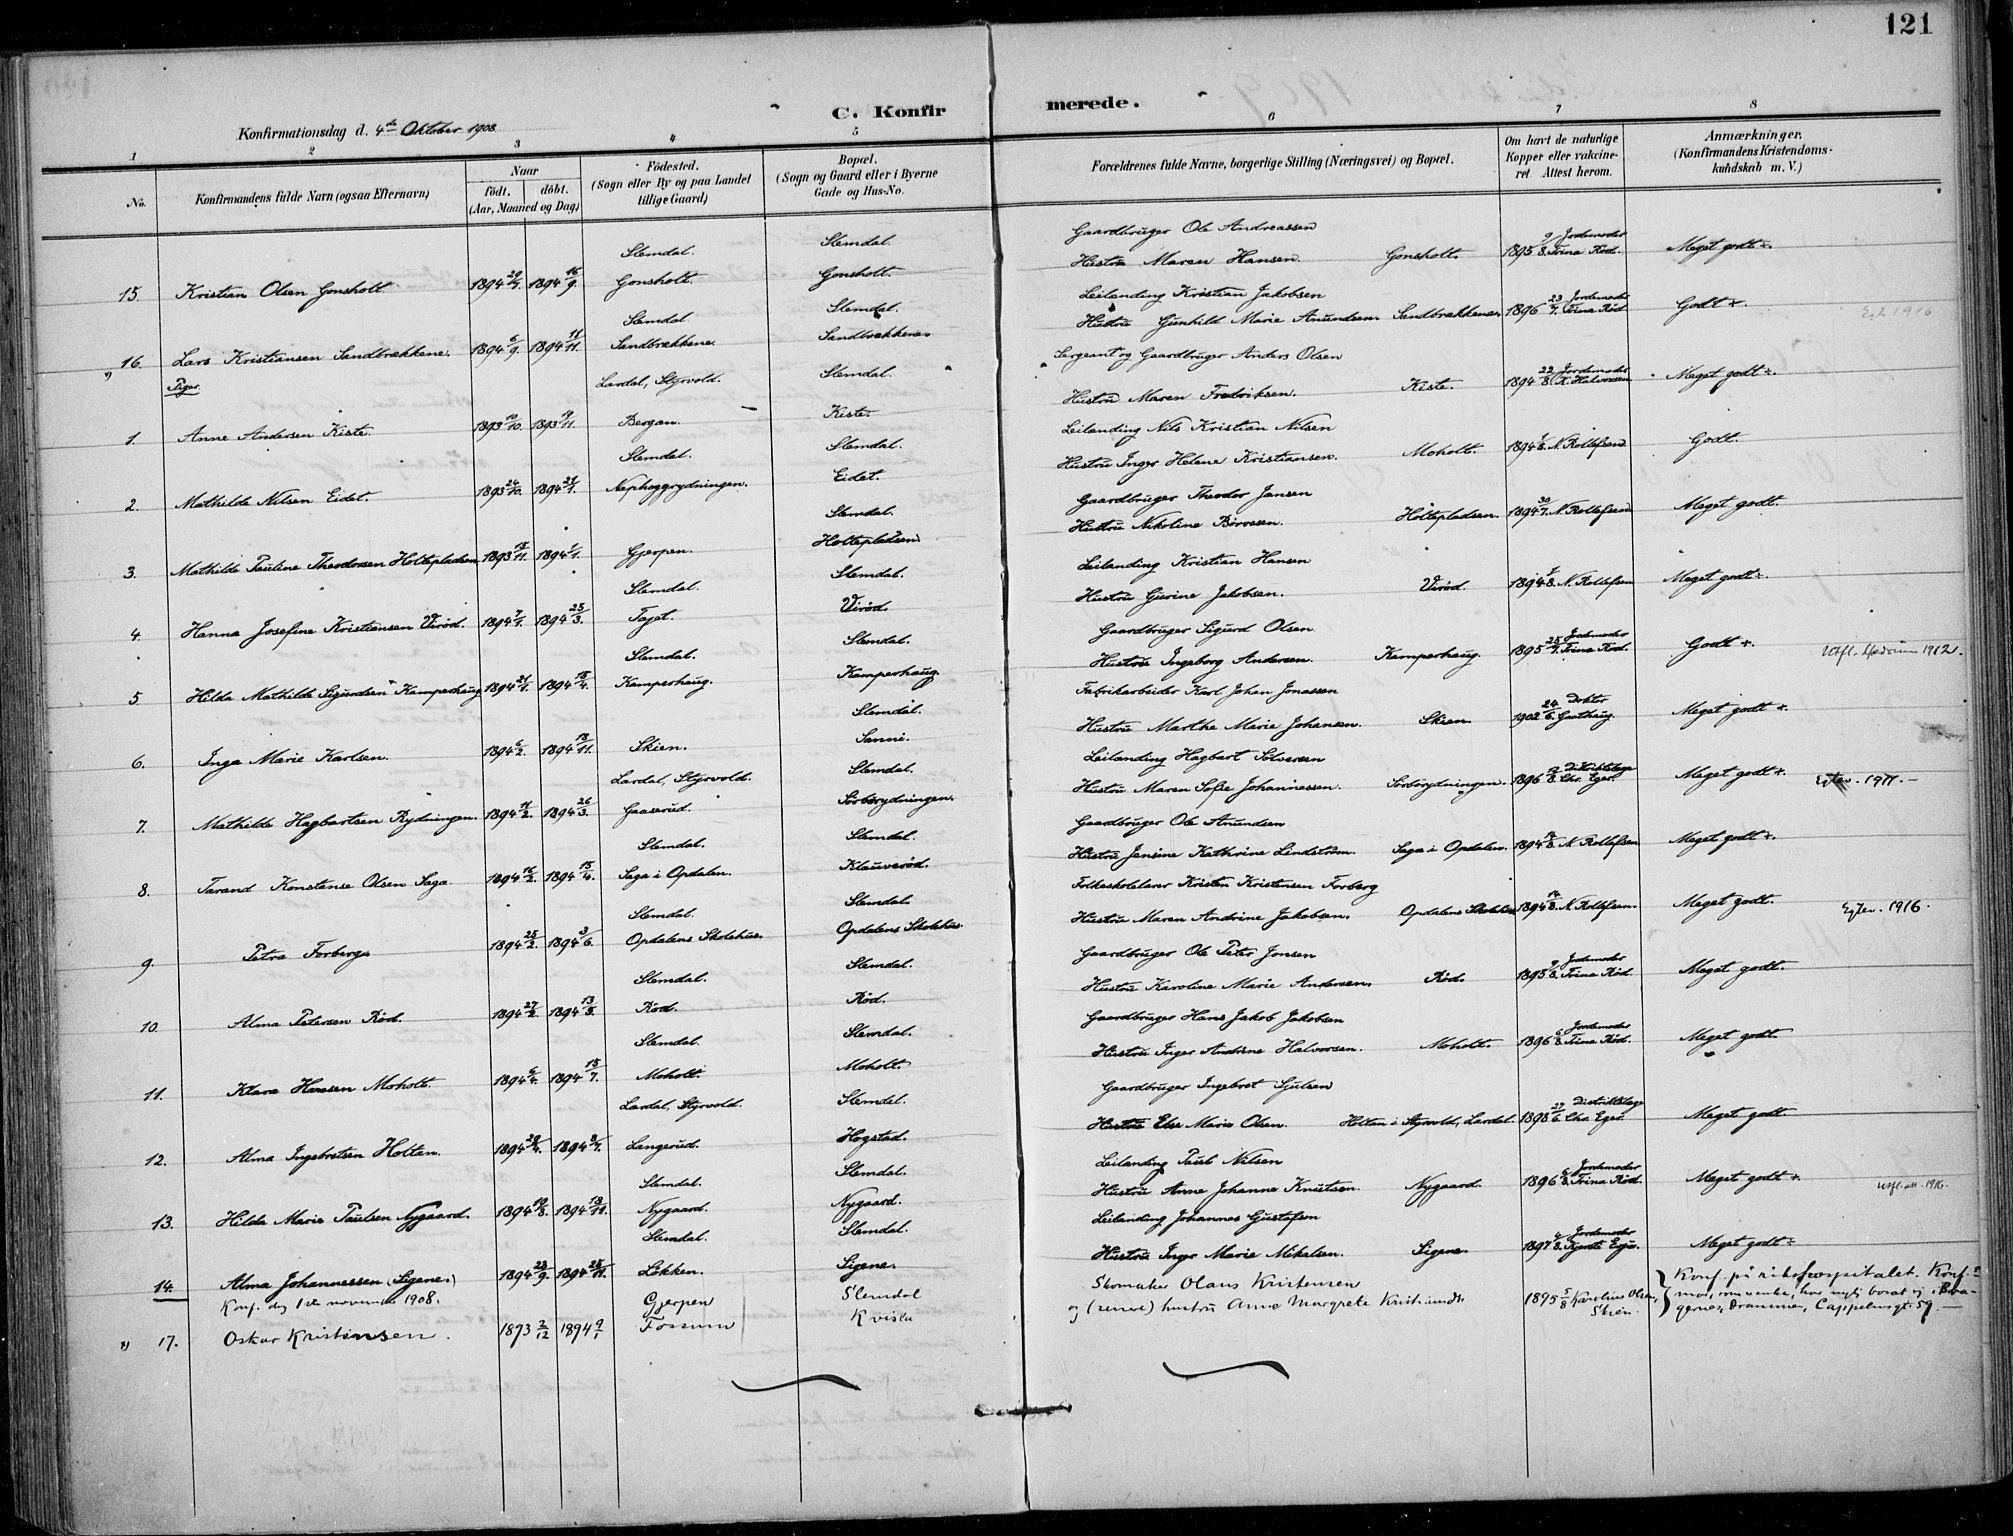 121
C. Konfirmerede.
Konfirmationsdag d. 4de Oktober 1908
1 2 3 4 5 6 7 8
No.
Konfirmandens fulde Navn (ogsaa Efternavn)
Naar
födt. döbt.
(Aar, Maaned og Dag)
Födested.
(Sogn eller By og paa Landet
tillige Gaard)
Bopæl.
(Sogn og Gaard eller i Byerne
Gade og Hus-No.
Forældrenes fulde Navne, borgerlige Stilling (Næringsvei) og Bopæl.
Om havt de naturlige
Kopper eller vakcineret
Attest herom.
Anmærkninger.
(Konfirmandens Kristendomskundskab m. V.)
Slemdal. Slemdal. Gaardbruger Ole Andreassen
15. Kristian Olsen Gonsholt. 1894 1894 16/9. Gonsholt. Gonsholt. Hustru Maren Hansen. Gonsholt. 1895 9/8. Jordemoder Trina Rød. Meget godt ÷.
Slemdal. Slemdal. Leilænding Kristian Jakobsen
16. Lars Kristiansen Sandbrækkene. 1894 6/9. 1894 11/11. Sandbrækkene. Sandbrækkene. Hustru Gunhild Marie Amundsen. Sandbrækkene. 1896 23/7. Jordemoder Trina Rød. Godt +. 1916
Piger.
Lardal, Styrvold. Slemdal. Sergeant og Gaardbruger Anders Olsen
1. Anne Andersen Kiste. 1893 10/10. 1893 19/11. Bergan. Kiste. Hustru Maren Fredriksen. Kiste. 1894 22/8. Jordemoder K. Halvorsen Meget godt ÷.
Slemdal. Slemdal. Leilænding Nils Kristian Nilsen
2. Mathilde Nilsen Eidet. 1893 24/10. 1894 21/1. Nephøgrydningen. Eidet. Hustru Inger Helene Kristiansen. Moholt. 1894 N. Rollefsen Godt.
Slemdal. Gaardbruger Theodor Jansen
3. Mathilde Pauline Theodorsen Holtepladsen 1893 13/11. 1894 1/1. Gjerpen. Holtepladsen Hustru Nikoline Børresen. Holtepladsen. 1894 30/7. N. Rollefsen Meget godt.
Slemdal. Slemdal. Leilænding Kristian Hansen
4. Hanna Josefine Kristiansen Virød. 1894 7/1. 1894 25/3. Tajet. Virød. Hustru Gurine Jakobsen. Virød. 1894 N. Rollefsen Meget godt ÷.
Slemdal. Slemdal. Gaardbruger Sigurd Olsen
5. Hilda Mathilde Sigurdsen Kamperhaug 1894 21/1. 1894 15/4. Kamperhaug. Kamperhaug. Hustru Ingeborg Andersen. Kamperhaug. 1895 25/7. Jordemoder Trina Rød. Godt +. Utfl. Hedrum 1912.
Slemdal. Fabrikarbeider Karl Johan Jonassen
6. Inga Marie Karlsen. 1894 6/2. 1894 18/11. Skien. Sanni. Hustru Marthe Marie Johansen. Skien. 1902 24/6. Doktor Meget godt +
Lardal, Styrvold. Slemdal. Leilænding Hagbart Solvesen
7. Mathilde Hagbartsen Rydningen. 1894 11/2. 1894 26/3. Gaaserud. Sörbörydningen. Hustru Maren Sofie Johannessen. Sörbörydningen. 1896 Distriktslæge Chr. Eger. Meget godt +. Egtev. 1911. –
Slemdal. Slemdal. Gaardbruger Ole Amundsen
8. Tarand Konstanse Olsen Saga 1894 16/2. 1894 15/4. Saga i Opdalen. Klauverød. Hustru Jensine Kathrine Lindstrøm. Saga i Opdalen. 1894 14/8. N. Rollefsen Meget godt ÷.
Slemdal. Slemdal. Folkeskolelærer Kristen Kristensen Forberg
9. Petra Forberg 1894 25/2. 1894 3/6. Opdalens Skolehus. Opdalens Skolehus Hustru Maren Andrine Jakobsen. Opdalens Skolehus 1894 14/8. N. Rollefsen. Meget godt. Egtev. 1916.
Slemdal. Slemdal. Gaardbruger Ole Peter Jonsen
10. Alma Petersen Rød. 1894 27/2. 1894 13/5. Rød. Rød. Hustru Karoline Marie Andersen. Rød. 1895 9/8. Jordemoder Trina Rød. Meget godt.
Slemdal. Slemdal. Gaardbruger Hans Jakob Jakobsen
11. Klara Hansen Moholt. 1894 6/4. 1894 15/7. Moholt. Moholt. Hustru Inger Andrine Halvorsen. Moholt. 1896 6/8. Jordemoder Trina Rød. Meget godt
Lardal, Styrvold. Slemdal. Gaardbruger Ingebret Sjulsen
12. Alma Ingebretsen Holtan. 1894 29/4. 1894 Langerud. Hogstad. Hustru Else Marie Olsen. Holtan i Styrvold, Lardal. 1898 27/6. Distriktslæge Chr. Eger. Meget godt
Slemdal. Slemdal. Leilænding Paul Nilsen
13. Hilda Marie Paulsen Nygaard. 1894 19/8. 1894 18/11. Nygaard. Nygaard. Hustru Anne Johanne Knutsen. Nygaard. 1896 6/8. Jordemoder Trina Rød. Meget godt + Utfl. att. 1916.
Slemdal. Slemdal. Leilænding Johannes Gustafsen
14. Alma Johannessen (Sigene.) 1894 23/9. 1894 25/11. Løkken. Sigene. Hustru Inger Marie Mikelsen. Sigene. 1897 Jordemoder Meget godt ÷
Konf. dag 1ste november 1908. Gjerpen Slemdal Skomaker Olaus Kristensen
17. Oskar Kristensen. 1893 2/12 1894 9/1 Fossum Kvisla og (senere) hustru Anne Margrete 1895 5/8 Karoline Olsen, Skien. Konf. på rikshospitalet. Drammen, Cappelensgt. 59. –